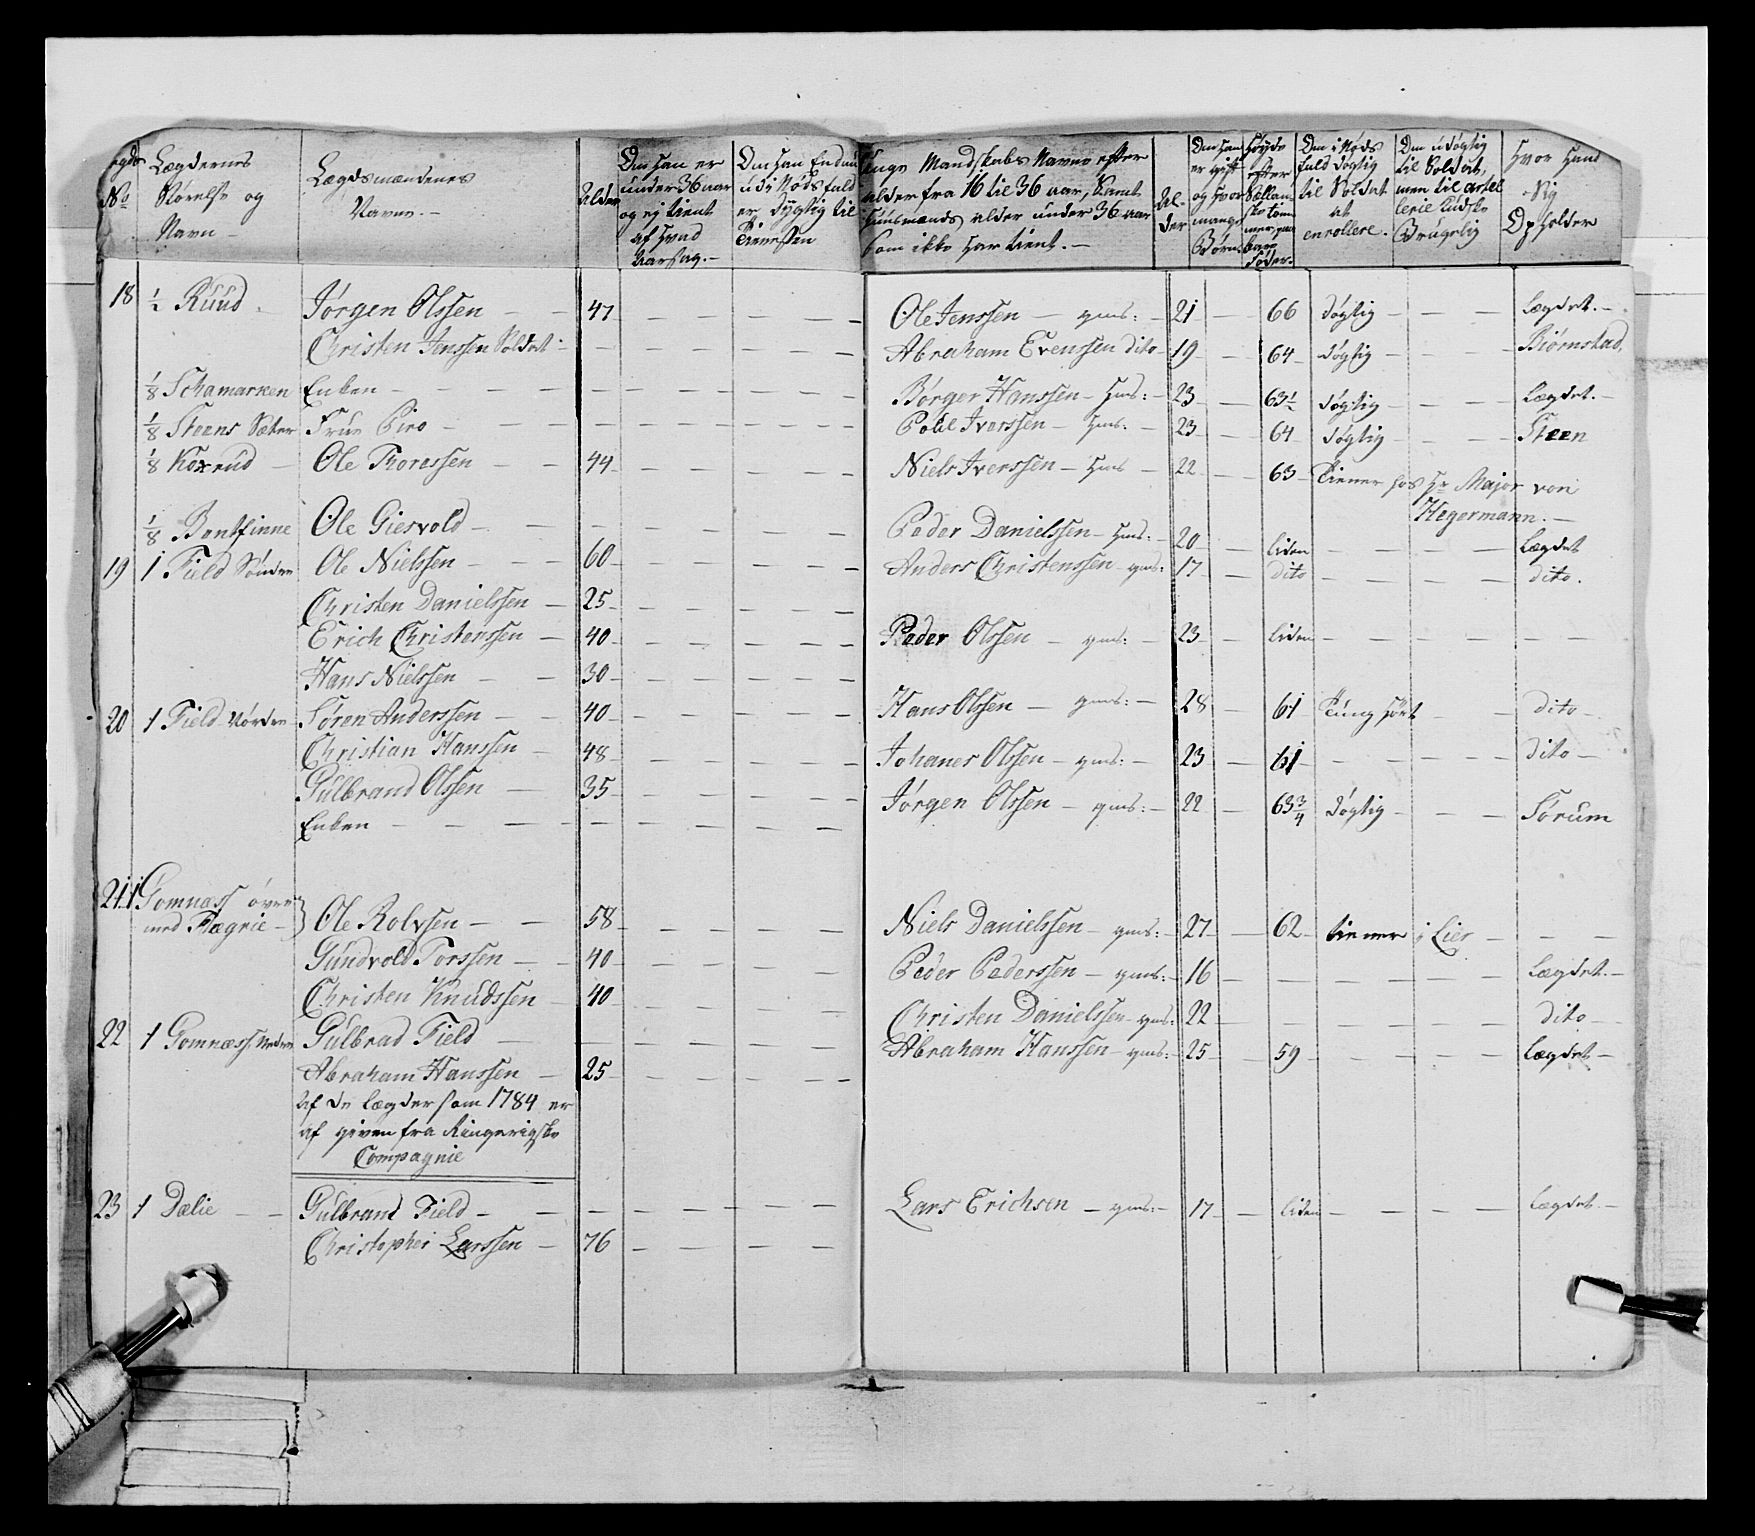 Lægdernes Størelse og Navn –
Lægdsmændenes Navne. –
Alder
Om han er under 36 aar og ej tient af hvad Aarsag. –
Om han Endnu udi Nøds fald er dygtig til Tienesten
Unge Mandskabs Navne efter alder fra 16 til 36 aar, samt Huusmænds alder under 36 aar som ikke har tient. –
Al- der
Om han er gift og hvor mange Børn
Høyde efter
Om i Nøds fald døgtig til Soldat at enrollere.
Om udøgtig til Soldat, men til artellerie Kudsk Brugelig
Hvor hand Sig Opholder
18 ½ Ruud – Jørgen Olssen – – 47 – – – – – Ole Jenssen – gms: – 21 – 66 døgtig – – – Lægdet. –
Christen Jenssen Soldat – – – – – Abraham Evenssen dito – 19 – 64 – døgtig – – – Biørnstad
⅛ Enken – – – – – – – – – Børger Hanssen – Hms: – 23 – 63½ døgtig – – – Lægdet. –
⅛ Steens Sæter Frue – – – – – – – Poul Iverssen – Hms: – 23 – 64 døgtig – – – Steen
⅛ Koxrud – Ole Thoressen – – 44 – – – – – Niels Iverssen – Hms – 22 – 63 – Tiener hos Hr Major von
Hegermann. –
⅛ Bentfinne Ole Giesvold – – – – – – Peder Danielssen – Hms: – 20 – liden – – – Lægdet
19 1 Field Søndre Ole Nielssen – – – 60 – – – – – Anders Christenssen gms: 17 – dito – – – – dito.
Christen Danielssen – 25 – – – – –
Erich Christenssen – 40 – – – – – Peder Olssen – gms: – 23 – liden – – – – – –
Hans Nielssen – – 30 – – – – –
20 1 Field Nørdre Søren Anderssen – – 40 – – – – – Hans Olssen – gms: – 28 – 61 Tunghört – – dito –
Christian Hanssen – 48 – – – – – Johanes Olssen – gms: – 23 – 61 – – – – – dito –
Gulbrand Olssen – 35 – – – – – Jørgen Olssen – gms: – 22 – 63¾ døgtig – – – Sørum
Enken – – – – – – – – –
21 1 Gomnæss øvre
med Flagrie – } Ole Rolvsen – – 58 – – – – – Niels Danielssen – gms: – 27 – 62 – tiener i Lier – – –
Gundvold Torssen – – 40 – – – – – Peder Pederssen – gms: – 16 – – – – – Lægdet. –
Christen Knudssen – 40 – – – – – Christen Danielssen – gms: 22 – – – – – dito –
22 1 Gomnæss Nedre Gulbrad Field – – – – – – Abraham Hanssen – gms: – 25 – 59 – – – – Lægdet –
Abraham Hanssen – 25 – – – – –
Af de Lægder som 1784 er
af given fra Ringerigske
Compagnie
23 1 Dælie – – Gulbrand Field – – – – – – – Lars Erichsen – gms: – 17 – liden – – – – Lægdet. –
Christopher Larssen – 76 – – – – –